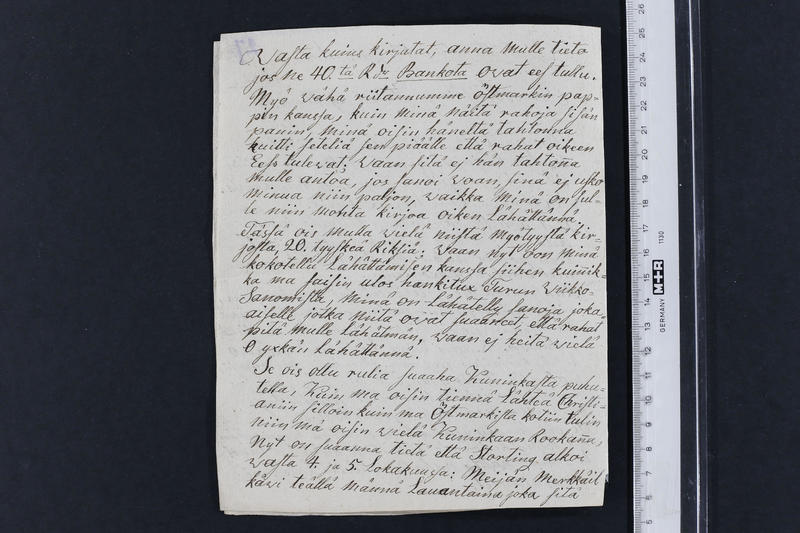 Wasta kuins kirjutat, anna mulle tieto
jos ne 40. tä Rdr Bankota ovat ees tullu.
Myö vähä riitannumme Östmarkin pap-
pin kanssa, kuin minä näitä rahoja sisän
panin, minä oisin häneltä tahtonna
kuitti seteliä sen piäälle että rahat oikeen
Eess tulevat. vaan sitä ej hän tahtoña
mulle antoa, jos sanoi vaan, sinä ej usko
minua niin paljon, vaikka minä on sul-
le niin monta kirjoa oiken Lähättännä.
Tässä ois mulla vielä niistä myötyystä kir-
josta, 20. tyyskeä Riksiä; vaan nyt oon minä
kokotellu Lähättämisen kanssa siihen kuiñik-
ka ma saisin ulos hankitux Turun Wiikko-
Sanomista, minä on Lähätelly sanoja joka-
aiselle jotka niitä ovat suaaneet, että rahat
pitä mulle Lähätmän, vaan ej heitä vielä
O yxkän Lähättännä.
Se ois ollu rulia suaaha Kuninkasta puhu-
tella, Kuin ma oisin tiennä Lähteä Christi-
aniin silloin kuin ma Östmarkista kotiin tulin
niin mä oisin vielä Kuninkaan Kookaña,
Nyt on suaanna tietä että Storting alkoi
vasta 4. ja 5. Lokakuussa: Meijän Merkkäil
käwi teällä männä Lauantaina joka sitä
GERMANY M+R 1130
26
25
24
23
22
21
20
19
18
17
16
15
14
13
12
11
10
9
8
7
6
5